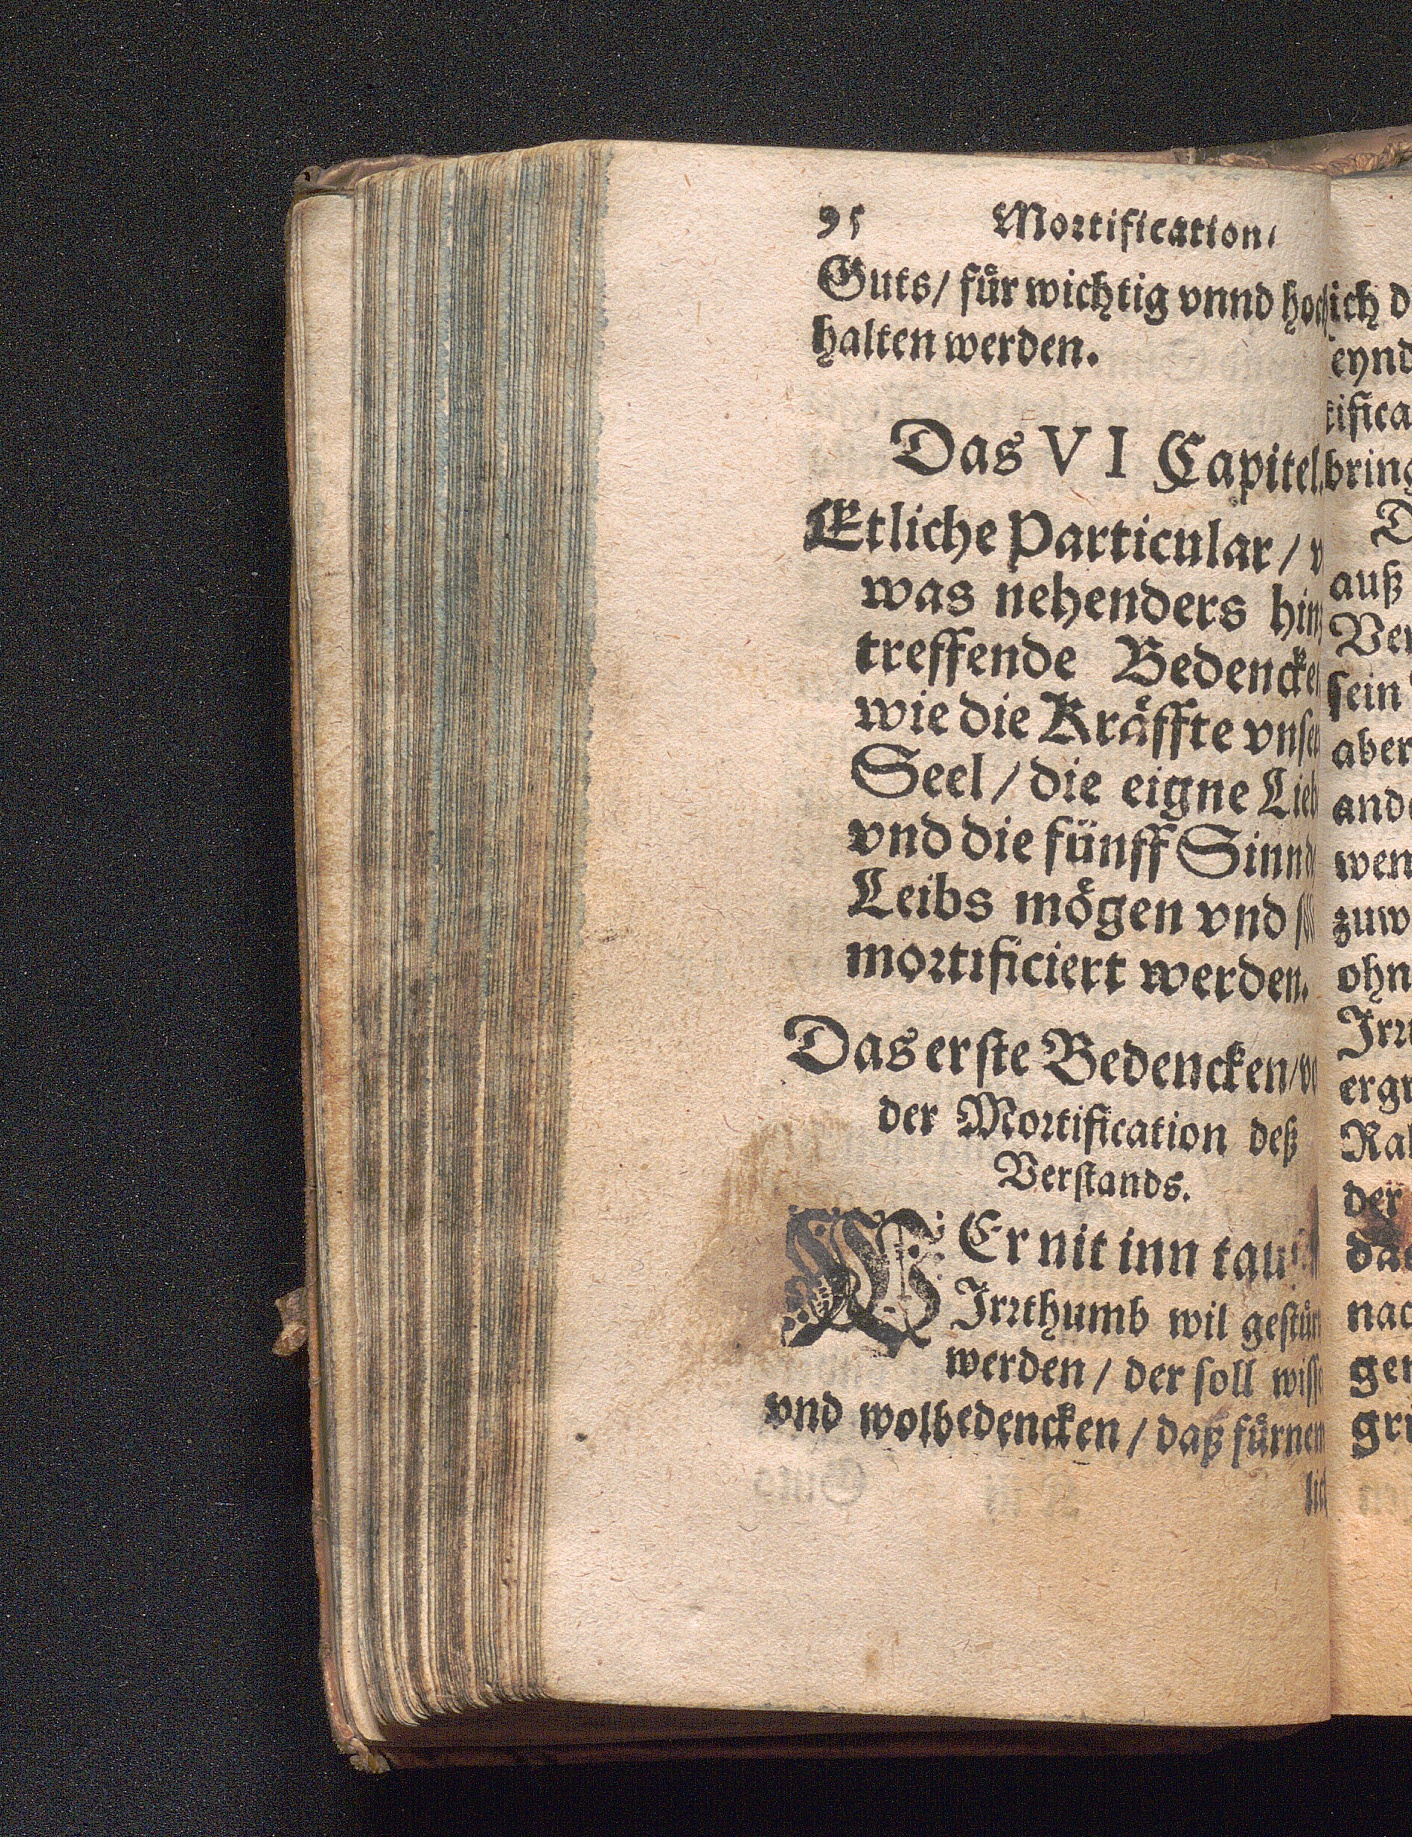 95 Mortification/
Guts/ für wichtig vnnd hoch
halten werden.
Das VI Capitel.
Etliche Particular/
was nehenders hin⸗
treffende Bedencken
wie die Kräffte vnser
Seel/ die eigne Lieb
vnd die fünff Sinn
Leibs mögen vnd
mortificiert werden.
Das erste Bedencken/ vo
der Mortification deß
Verstands.
WEr nit inn
Irrthumb wil gestür
werden/ der soll wisse
vnd wolbedencken/ daß fürnem
lich
ich d
eynd
tifica
bring
D
auß
Ver
sein
aber
ande
wen
zuw
ohn
Irrt
ergr
der
nac
gen
gri